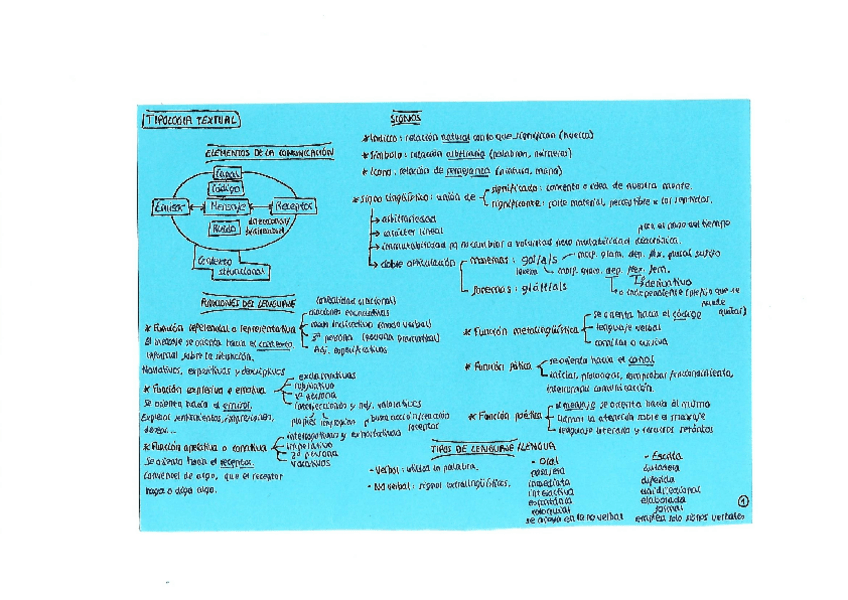 TIPOLOGIA TEXTUAL
ELEMENTOS DE LA COMUNICACIÓN
Canal
Código
Emisor
Mensaje
Receptor
Ruido
Contexto
situacional
SIGNOS
* Indicio: relación natural con lo que significan (huella)
* Símbolo: relación arbitraria (palabras, números)
* Icono: relación de semejanza (pintura, mapa)
* Signo lingüístico: unión de
significado: concepto o idea de nuestra mente.
significante: parte material, perceptible x los sentidos.
→ arbitrariedad
→ carácter lineal
→ inmutabilidad pq no cambia a voluntad pero mutabilidad diacrónica.
paso del tiempo
→ doble articulación
monemas: gat/a/s
lexema
morf. gram. dep. flex. plural
morf. gram. dep. flex. fem.
derivativo
o independiente
fonemas: g/á/t/a/s
FUNCIONES DEL LENGUAJE
* Función referencial o representativa
El mensaje se orienta hacia el contexto
informar sobre la situación.
Narrativos, expositivos y descriptivos
oraciones enunciativas
modo indicativo (modo verbal)
3ª persona (persona gramatical)
Adj. especificativos
* Función expresiva o emotiva
se orienta hacia el emisor.
Expresar sentimientos, impresiones,
deseos...
exclamativas
subjuntivo
1ª persona
interjecciones y adj. valorativos
* Función apelativa o conativa
Se orienta hacia el receptor.
Convencer de algo, que el receptor
haga o diga algo.
busca acción/reacción
receptor
interrogativas y exhortativas
imperativo
2ª persona
vocativos
* Función metalingüística
se orienta hacia el código
lenguaje verbal
comillas o cursiva
* Función fática
se orienta hacia el canal
iniciar, prolongar, comprobar funcionamiento,
interrumpir comunicación.
* Función poética
el mensaje se orienta hacia él mismo
llamar la atención sobre el mensaje
lenguaje literario y recursos retóricos
TIPOS DE LENGUAJE/LENGUA
- Verbal: utiliza la palabra.
- No verbal: signos extralingüísticos.
- Oral
pasajera
inmediata
interactiva
espontánea
coloquial
se apoya en lo no verbal
- Escrita
duradera
diferida
unidireccional
elaborada
formal
emplea solo signos verbales
1